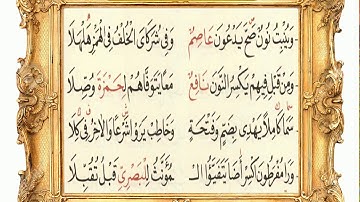 وَيُنْبِتُ نُونٌ صَحَّ يَدْعُونَ عَاصِمٌ وَفِي شُرَكَايَ الْخُلْفُ فِي الْهَمْزِ هَلْهَلَا
وَمِنْ قَبْلِ فِيهِمْ يَكْسِرُ النُّونَ نَافِعٌ مَعًا يَتَوَفَّاهُمْ لِحَمْزَةَ وُصِّلَا
سَمَا كَامِلًا يَهْدِي بِضَمٍّ وَفَتْحَةٍ وَخَاطِبْ يَرَوْا شَرْعًا وَالْآخِرُ فِي كِلَا
وَرَا مُفْرَطُونَ اكْسِرْ أَضَا يَتَفَيَّؤُا الْـ مُؤَنَّثُ لِلْبَصْرِيِّ قَبْلُ تُقُبِّلَا